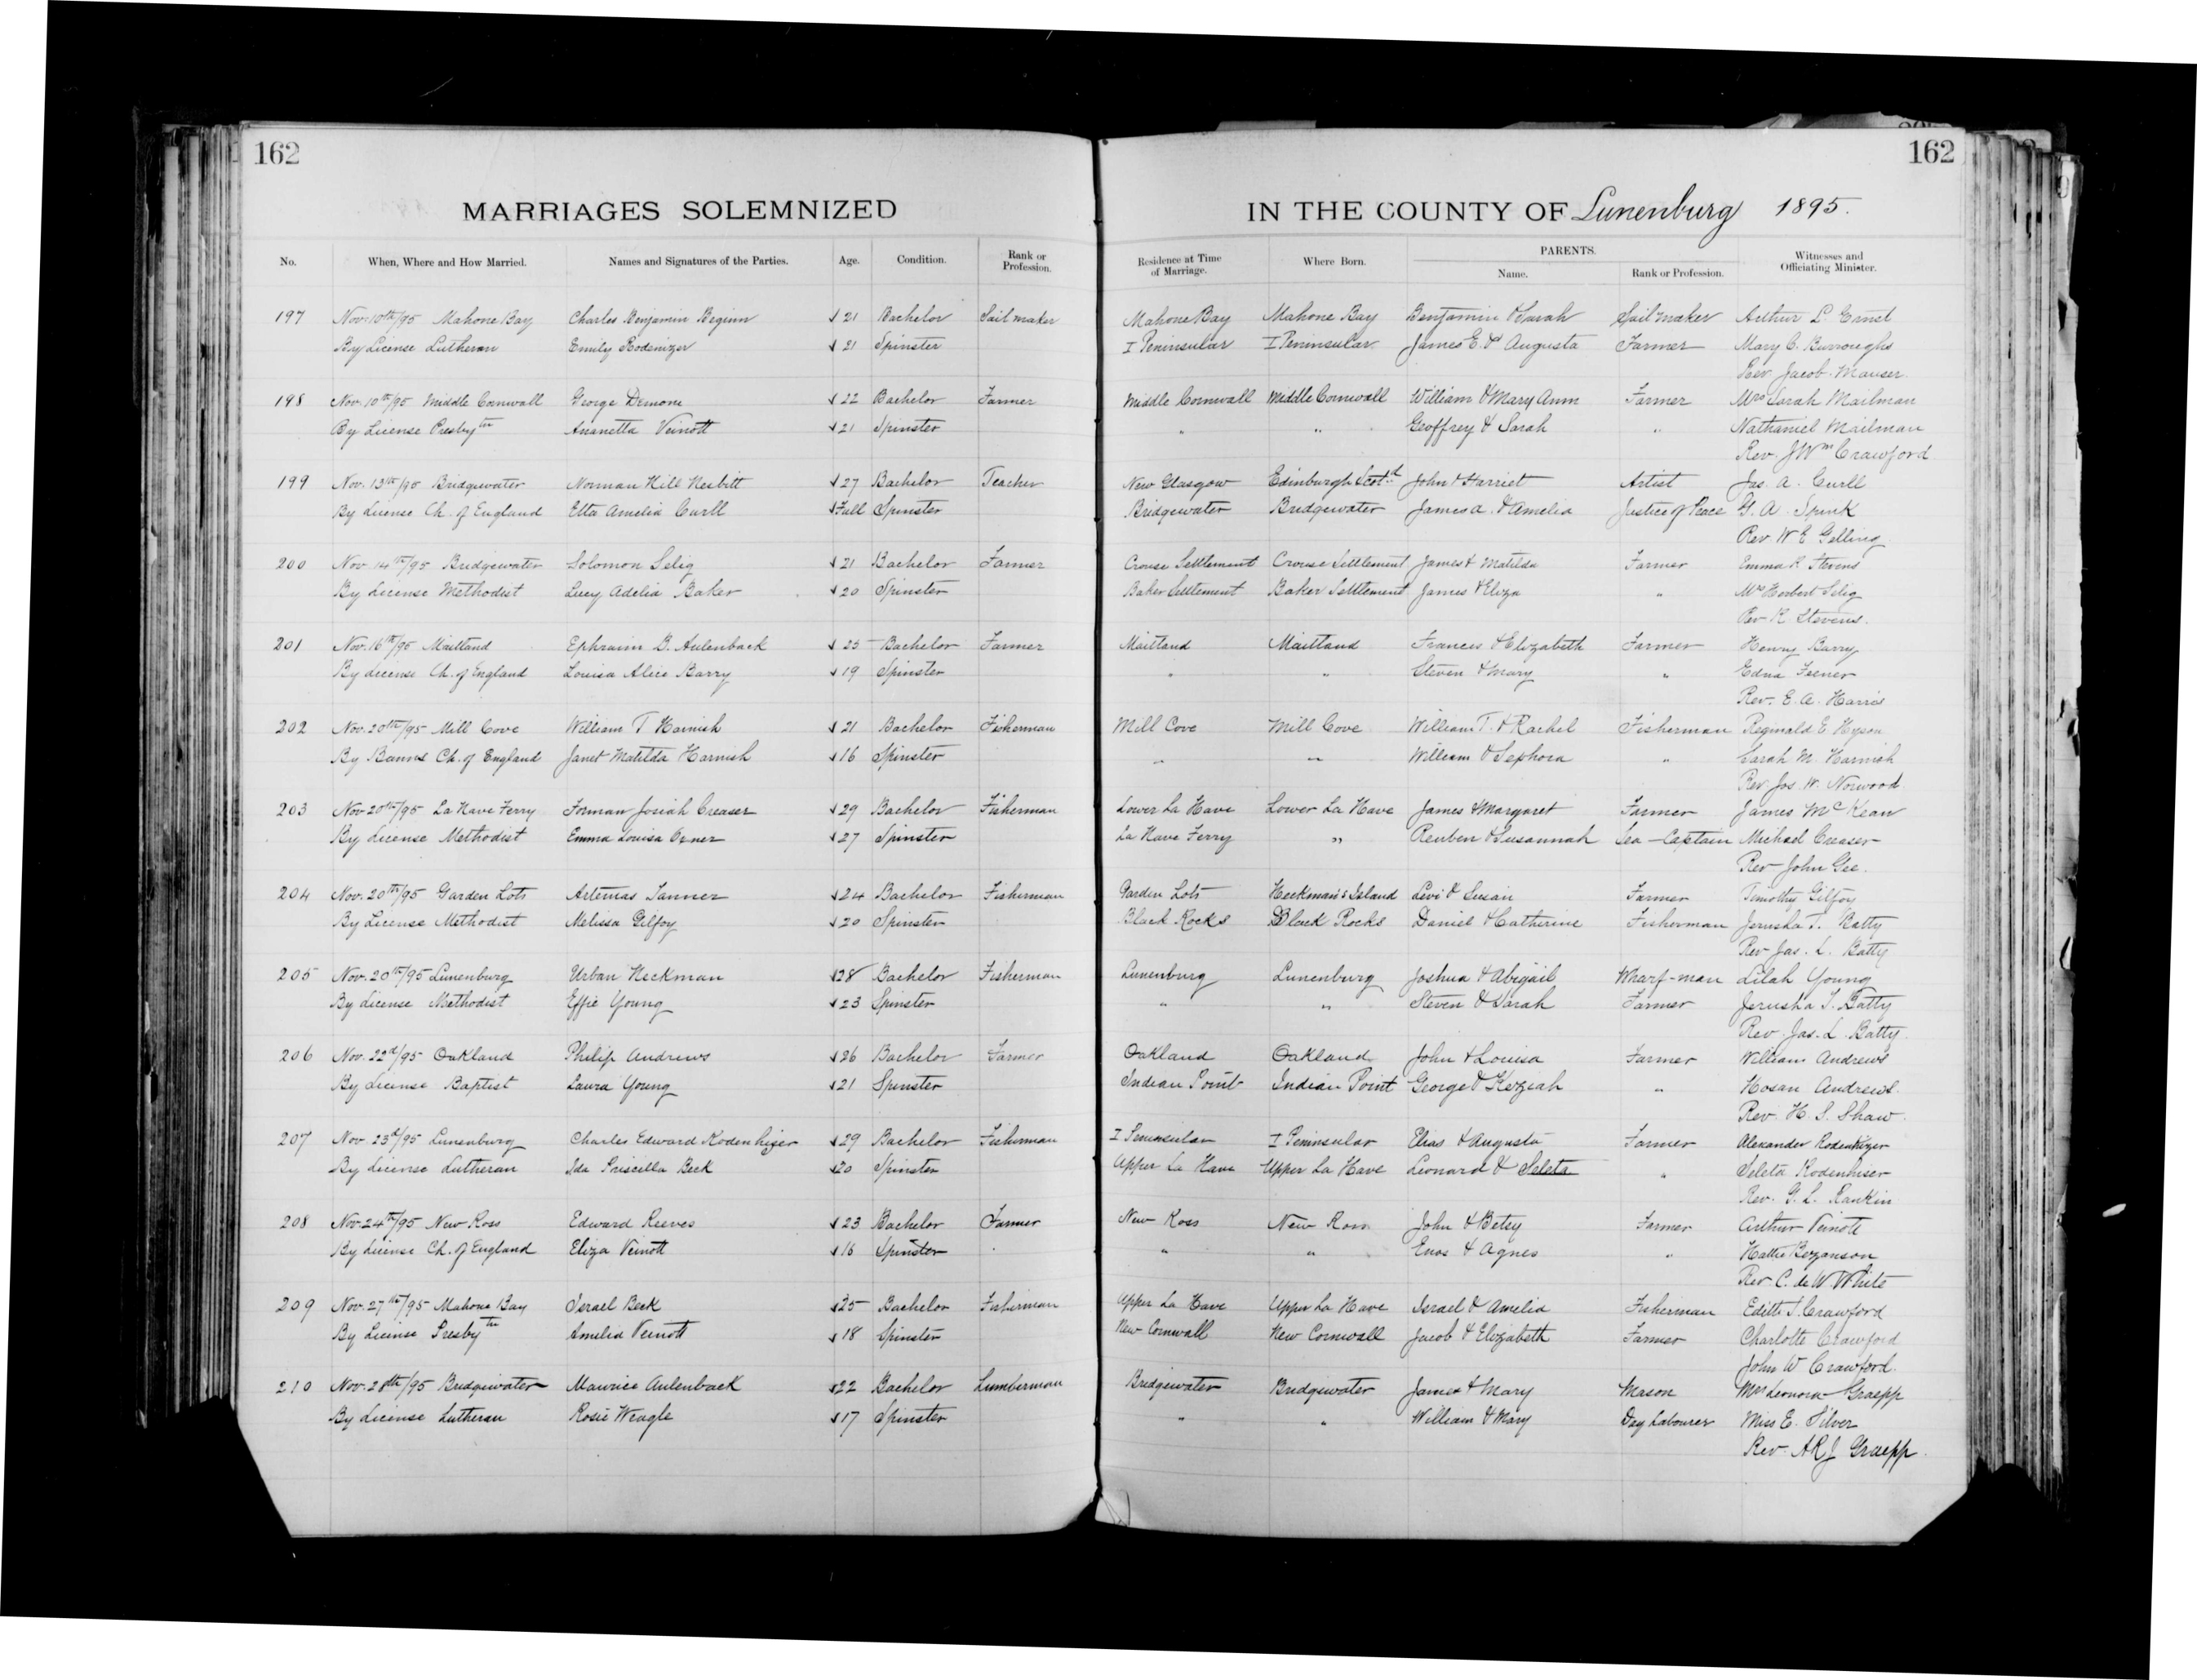 162
162
MARRIAGES SOLEMNIZED IN THE COUNTY OF Lunenburg 1895.
No. When, Where and How Married. Names and Signatures of the Parties. Age. Condition. Rank or Profession. Residence at Time of Marriage. Where Born. PARENTS. Name. Rank or Profession. Witnesses and Officiating Minister.
197 Nov. 10th/95 Mahone Bay Charles Benjamin Beginn 21 Bachelor Sail maker Mahone Bay Mahone Bay Benjamin & Sarah Sail maker Arthur L. Ernst
By License Lutheran Emily Rodenizer 21 Spinster I Peninsular I Peninsular James E. & Augusta Farmer Mary C. Burroughs
Rev. Jacob Mauser
198 Nov. 10th/95 Middle Cornwall George Demone 22 Bachelor Farmer Middle Cornwall Middle Cornwall William & Mary Ann Farmer Mrs Sarah Mailman
By License Presbytn Ananetta Veinott 21 Spinster " " Geoffrey & Sarah " Nathaniel Mailman
Rev. J Wm Crawford
199 Nov. 13th/95 Bridgewater Norman Hill Nesbitt 27 Bachelor Teacher New Glasgow Edinburgh Scotd John & Harriet Artist Jas. A. Curll
By License Ch. of England Etta Amelia Curll Full Spinster Bridgewater Bridgewater James A. & Amelia Justice of Peace G. A. Spink
Rev W E Gelling
200 Nov. 14th/95 Bridgewater Solomon Selig 21 Bachelor Farmer Crouse Settlement Crouse Settlement James & Matilda Farmer Emma R Stevens
By License Methodist Lucy Adelia Baker 20 Spinster Baker Settlement Baker Settlement James & Eliza " Mrs Herbert Selig
Rev R. Stevens.
201 Nov. 16th/95 Maitland Ephraim B. Aulenback 25 Bachelor Farmer Maitland Maitland Frances & Elizabeth Farmer Henry Barry
By License Ch. of England Louisa Alice Barry 19 Spinster " " Steven & Mary " Edna Feener
Rev. E. A. Harris
202 Nov. 20th/95 Mill Cove William T Harnish 21 Bachelor Fisherman Mill Cove Mill Cove William T. & Rachel Fisherman Reginald E Hyson
By Banns Ch. of England Janet Matilda Harnish 16 Spinster " " William & Sephora " Sarah M. Harnish
Rev Jos. W. Norwood
203 Nov 20th/95 La Have Ferry Forman Josiah Creaser 29 Bachelor Fisherman Lower La Have Lower La Have James & Margaret Farmer James McKean
By License Methodist Emma Louisa Oxner 27 Spinster La Have Ferry " Reuben & Susannah Sea-Captain Michael Creaser
Rev John Gee.
204 Nov. 20th/95 Garden Lots Artemas Tanner 24 Bachelor Fisherman Garden Lots Heckman's Island Levi & Susan Farmer Timothy Gilfoy
By License Methodist Melissa Gilfoy 20 Spinster Black Rocks Black Rocks Daniel & Catherine Fisherman Jerusha T. Batty
Rev Jas. L. Batty
205 Nov. 20th/95 Lunenburg Urban Heckman 28 Bachelor Fisherman Lunenburg Lunenburg Joshua & Abigail Wharf-man Lilah Young
By License Methodist Effie Young 23 Spinster " " Steven & Sarah Farmer Jerusha T. Batty
Rev. Jas. L. Batty.
206 Nov. 22d/95 Oakland Philip Andrews 26 Bachelor Farmer Oakland Oakland John & Louisa Farmer William Andrews
By License Baptist Laura Young 21 Spinster Indian Point Indian Point George & Keziah " Hosan Andrews.
Rev. H. S. Shaw.
207 Nov. 23d/95 Lunenburg Charles Edward Rodenhizer 29 Bachelor Fisherman I Peninsular I Peninsular Elias & Augusta Farmer Alexander Rodenhizer
By License Lutheran Ida Priscilla Beck 20 Spinster Upper La Have Upper La Have Leonard & Seleta " Seleta Rodenhiser
Rev. G. L. Rankin
208 Nov. 24th/95 New Ross Edward Reeves 23 Bachelor Farmer New Ross New Ross John & Betsy Farmer Arthur Veinott
By License Ch. of England Eliza Veinott 16 Spinster " " Enos & Agnes " Hattie Bezanson
Rev C. de W. White
209 Nov. 27th/95 Mahone Bay Israel Beck 25 Bachelor Fisherman Upper La Have Upper La Have Israel & Amelia Fisherman Edith J. Crawford
By License Presbytn Amelia Veinott 18 Spinster New Cornwall New Cornwall Jacob & Elizabeth Farmer Charlotte Crawford
John W Crawford.
210 Nov. 28th/95 Bridgewater Maurice Aulenback 22 Bachelor Lumberman Bridgewater Bridgewater James & Mary Mason Mrs Leonora Graepp
By License Lutheran Rosie Weagle 17 Spinster " " William & Mary Day Labourer Miss E. Silver
Rev. A R J Graepp.